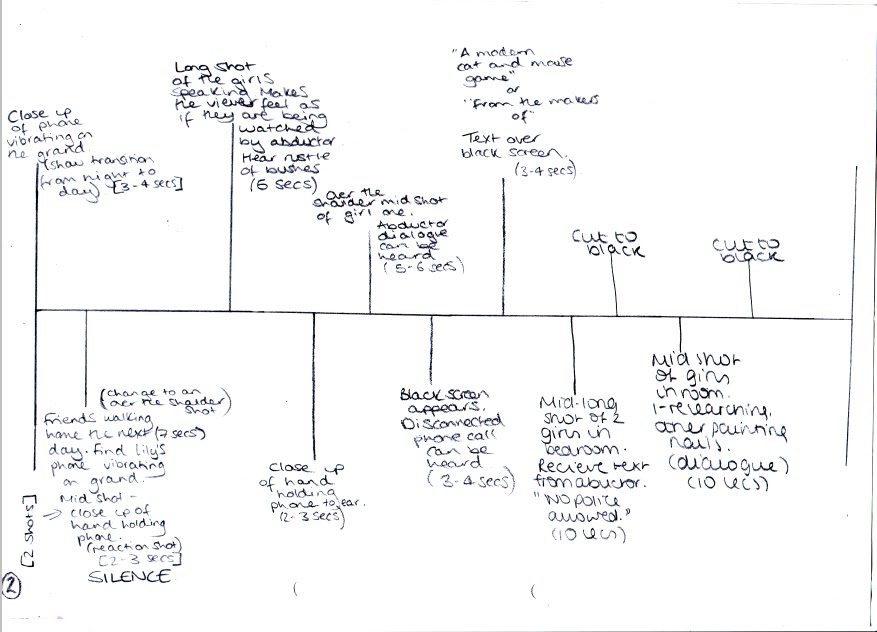 Close up
of phone
vibrating on
the grand.
(show transition
from night to
day) [3-4 secs]
Long shot
of the girls
speaking Makes
the viewer feel as
if they are being
watched
by abductor
Hear rustle
of bushes
(5 secs)
over the
shoulder mid shot
of girl one.
Abductor
dialogue
can be
heard
(5-6 secs)
"A modern
cat and mouse
game"
or
"From the makers
of"
Text over
black screen.
(3-4 secs)
CUT TO
black
CUT TO
black
(change to an
over the shoulder
shot)
Friends walking
home the next (7 secs)
day. find Lily's
phone vibrating
on grand.
Mid shot -
→ close up of
hand holding
phone.
(reaction shot)
[2-3 secs]
SILENCE
[2 shots]
Close up
of hand
holding
phone to ear.
(2-3 secs)
Black screen
appears.
Disconnected
phone call
can be
heard
(3-4 secs)
Mid-long
shot of 2
girls in
bedroom.
Recieve text
from abuctor.
"No police
allowed."
(10 secs)
Mid shot
of girls
in room.
1-researching,
other painting
nails.
(dialogue)
(10 secs)
2